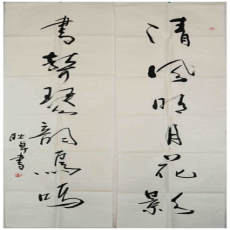 清风明月花影
书声琴韵鸟鸣